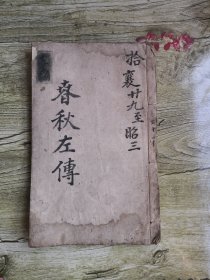 拾襄廿九至昭三
春秋左傳